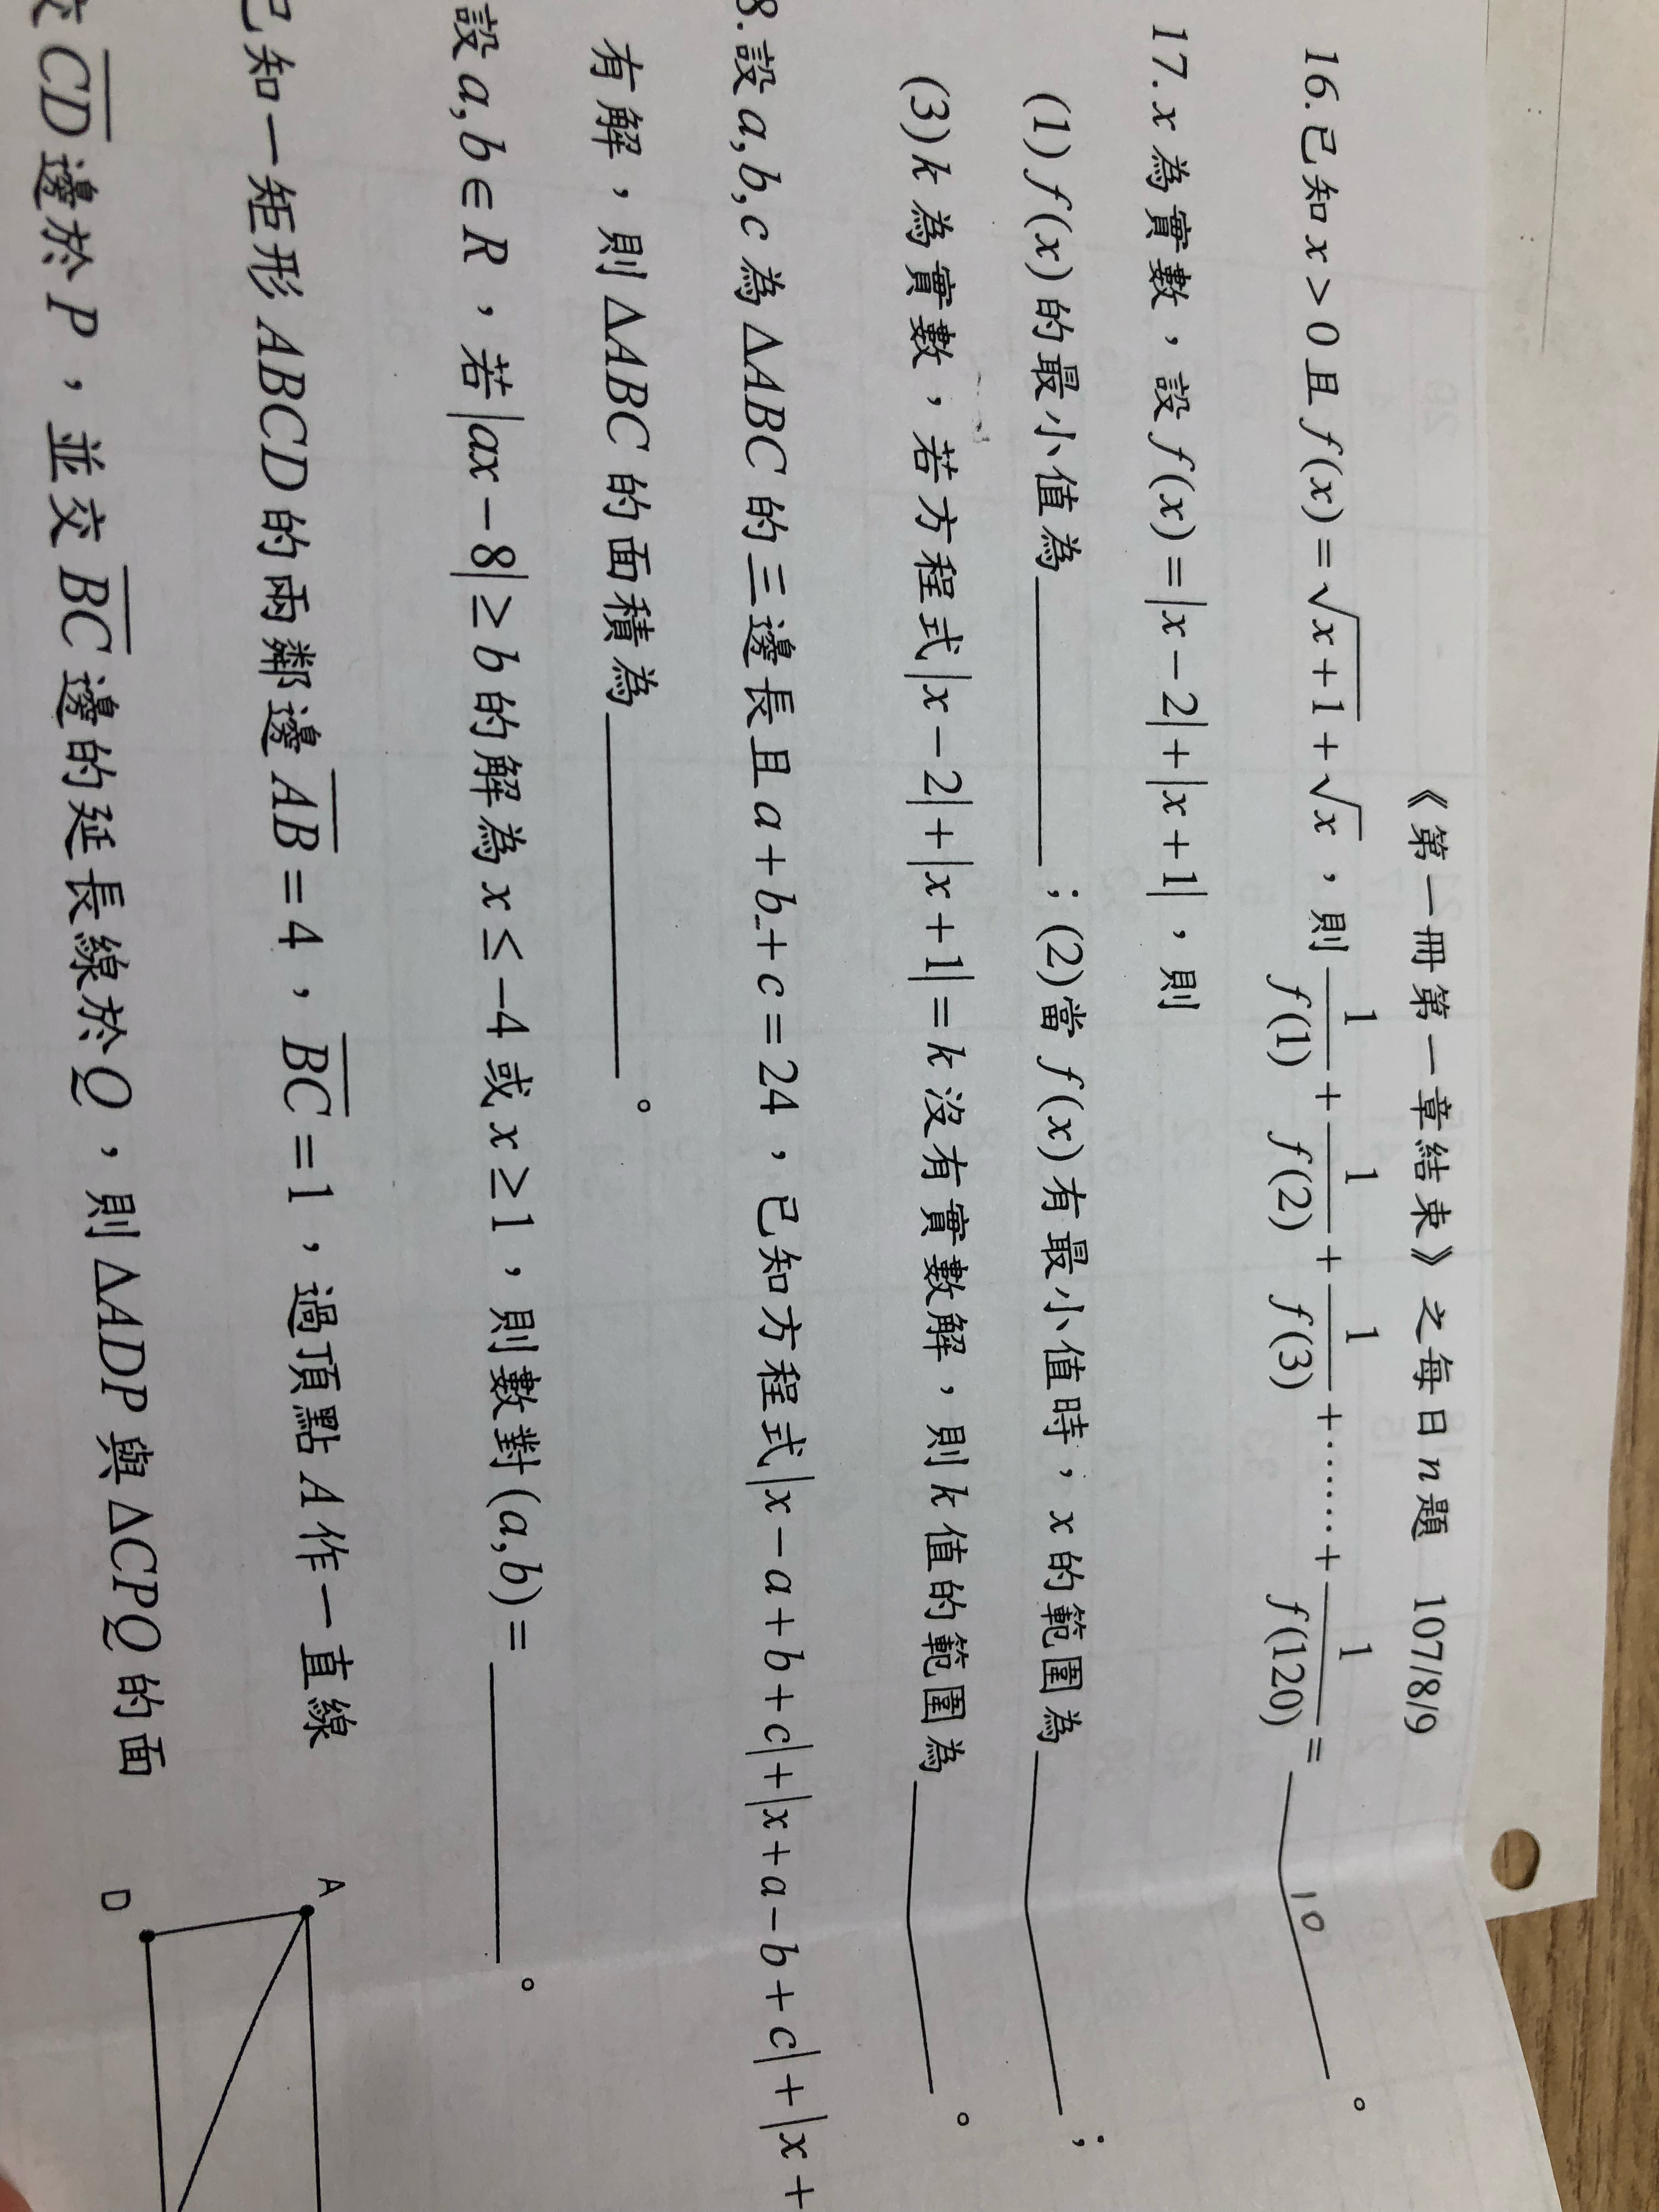 《第一冊第一章結束》之每日n題 107/8/9
16.已知 x > 0 且 f(x) = √(x+1) + √x，則 1/f(1) + 1/f(2) + 1/f(3) + …… + 1/f(120) = 10 。
17. x 為實數，設 f(x) = |x−2| + |x+1|，則
(1) f(x) 的最小值為 ；(2)當 f(x) 有最小值時，x 的範圍為 ；
(3) k 為實數，若方程式 |x−2| + |x+1| = k 沒有實數解，則 k 值的範圍為 。
8.設 a,b,c 為 ΔABC 的三邊長且 a+b+c = 24，已知方程式 |x−a+b+c| + |x+a−b+c| + |x+
有解，則 ΔABC 的面積為 。
設 a,b ∈ R，若 |ax−8| ≥ b 的解為 x ≤ −4 或 x ≥ 1，則數對 (a,b) = 。
已知一矩形 ABCD 的兩鄰邊 A̅B̅ = 4，B̅C̅ = 1，過頂點 A 作一直線
交 C̅D̅ 邊於 P，並交 B̅C̅ 邊的延長線於 Q，則 ΔADP 與 ΔCPQ 的面
A
D